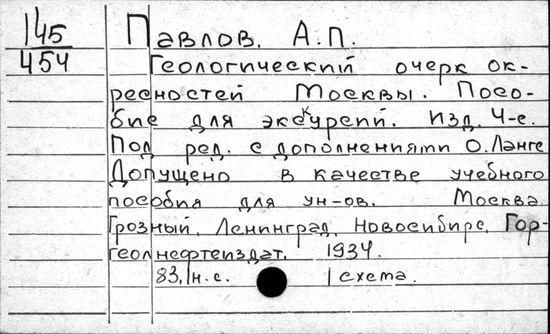 145 Павлов, А.П.
454 Геологический очерк ок-
ресностей Москвы. Посо-
бие для экскурсий. Изд. 4-е.
Под ред. с дополнениями О.Ланге
Допущено в качестве учебного
пособия для ун-ов. Москва
Грозный. Ленинград. Новосибирс. Гор-
геолнефтеиздат. 1934.
83,1н.с. 1 схема.